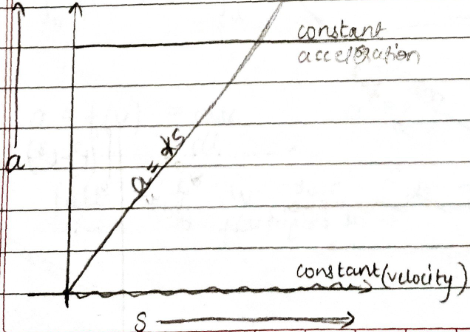 constant
acceleration
a
a = ks
constant (velocity)
S